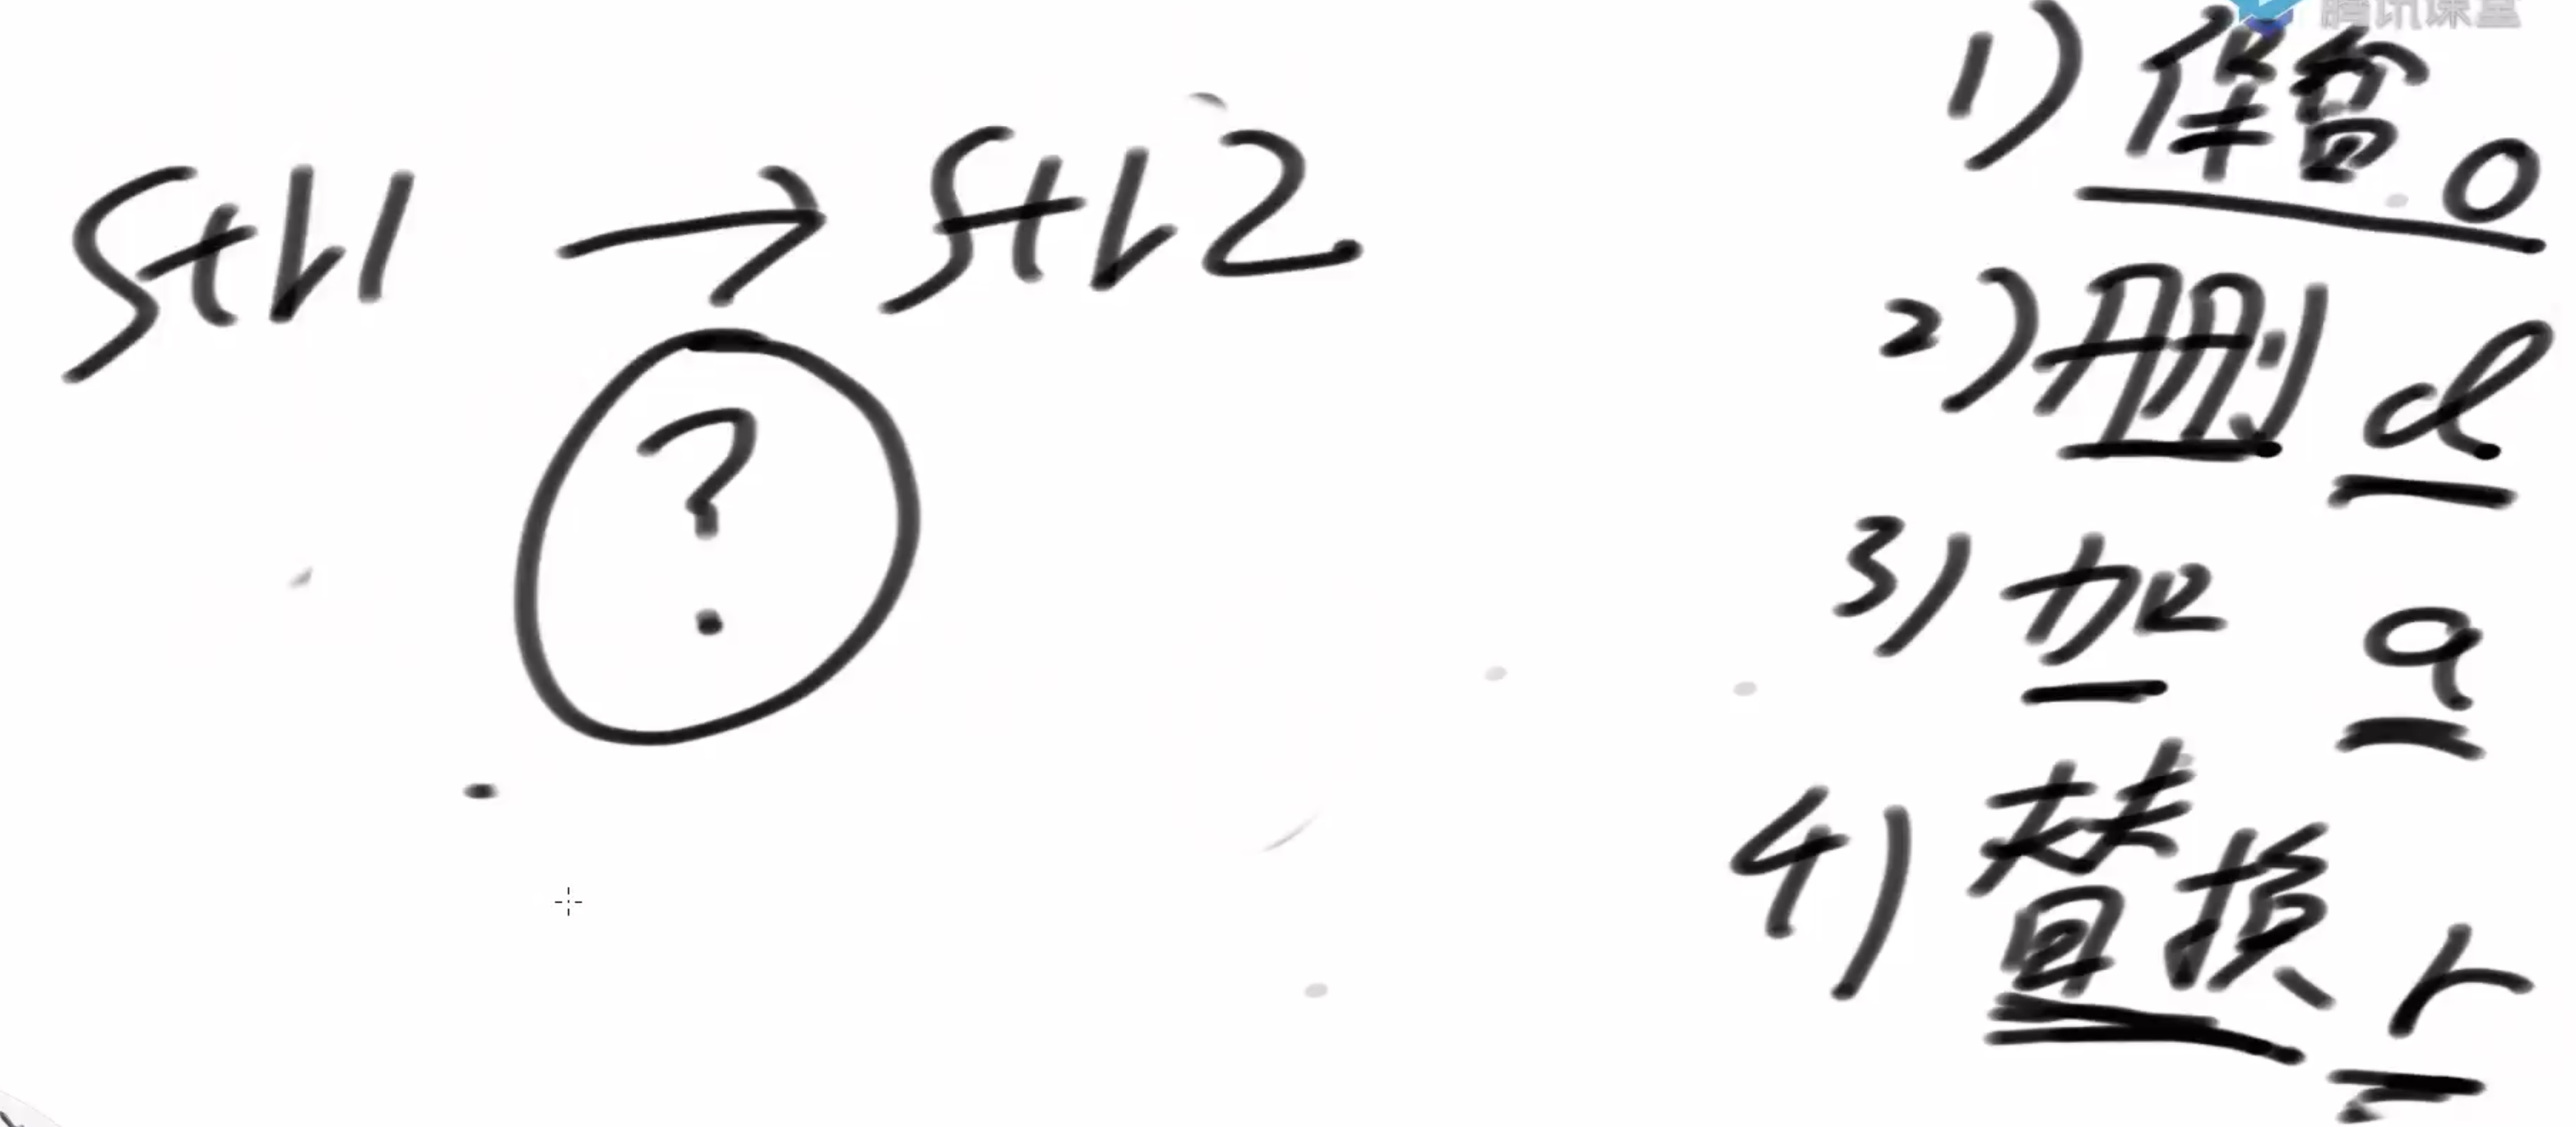 腾讯课堂
str1 → str2
?
1) 保留 0
2) 删 d
3) 加 a
4) 替换 r